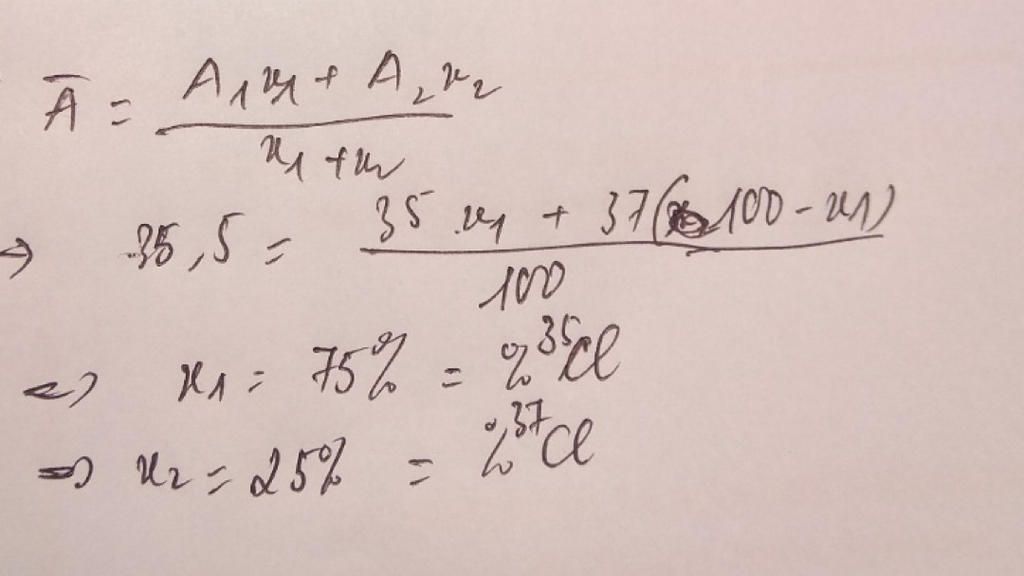 Ā = (A₁x₁ + A₂x₂) / (x₁ + x₂)
→ 35,5 = (35.x₁ + 37(100 - x₁)) / 100
⇔ x₁ = 75% = %³⁵Cl
⇒ x₂ = 25% = %³⁷Cl